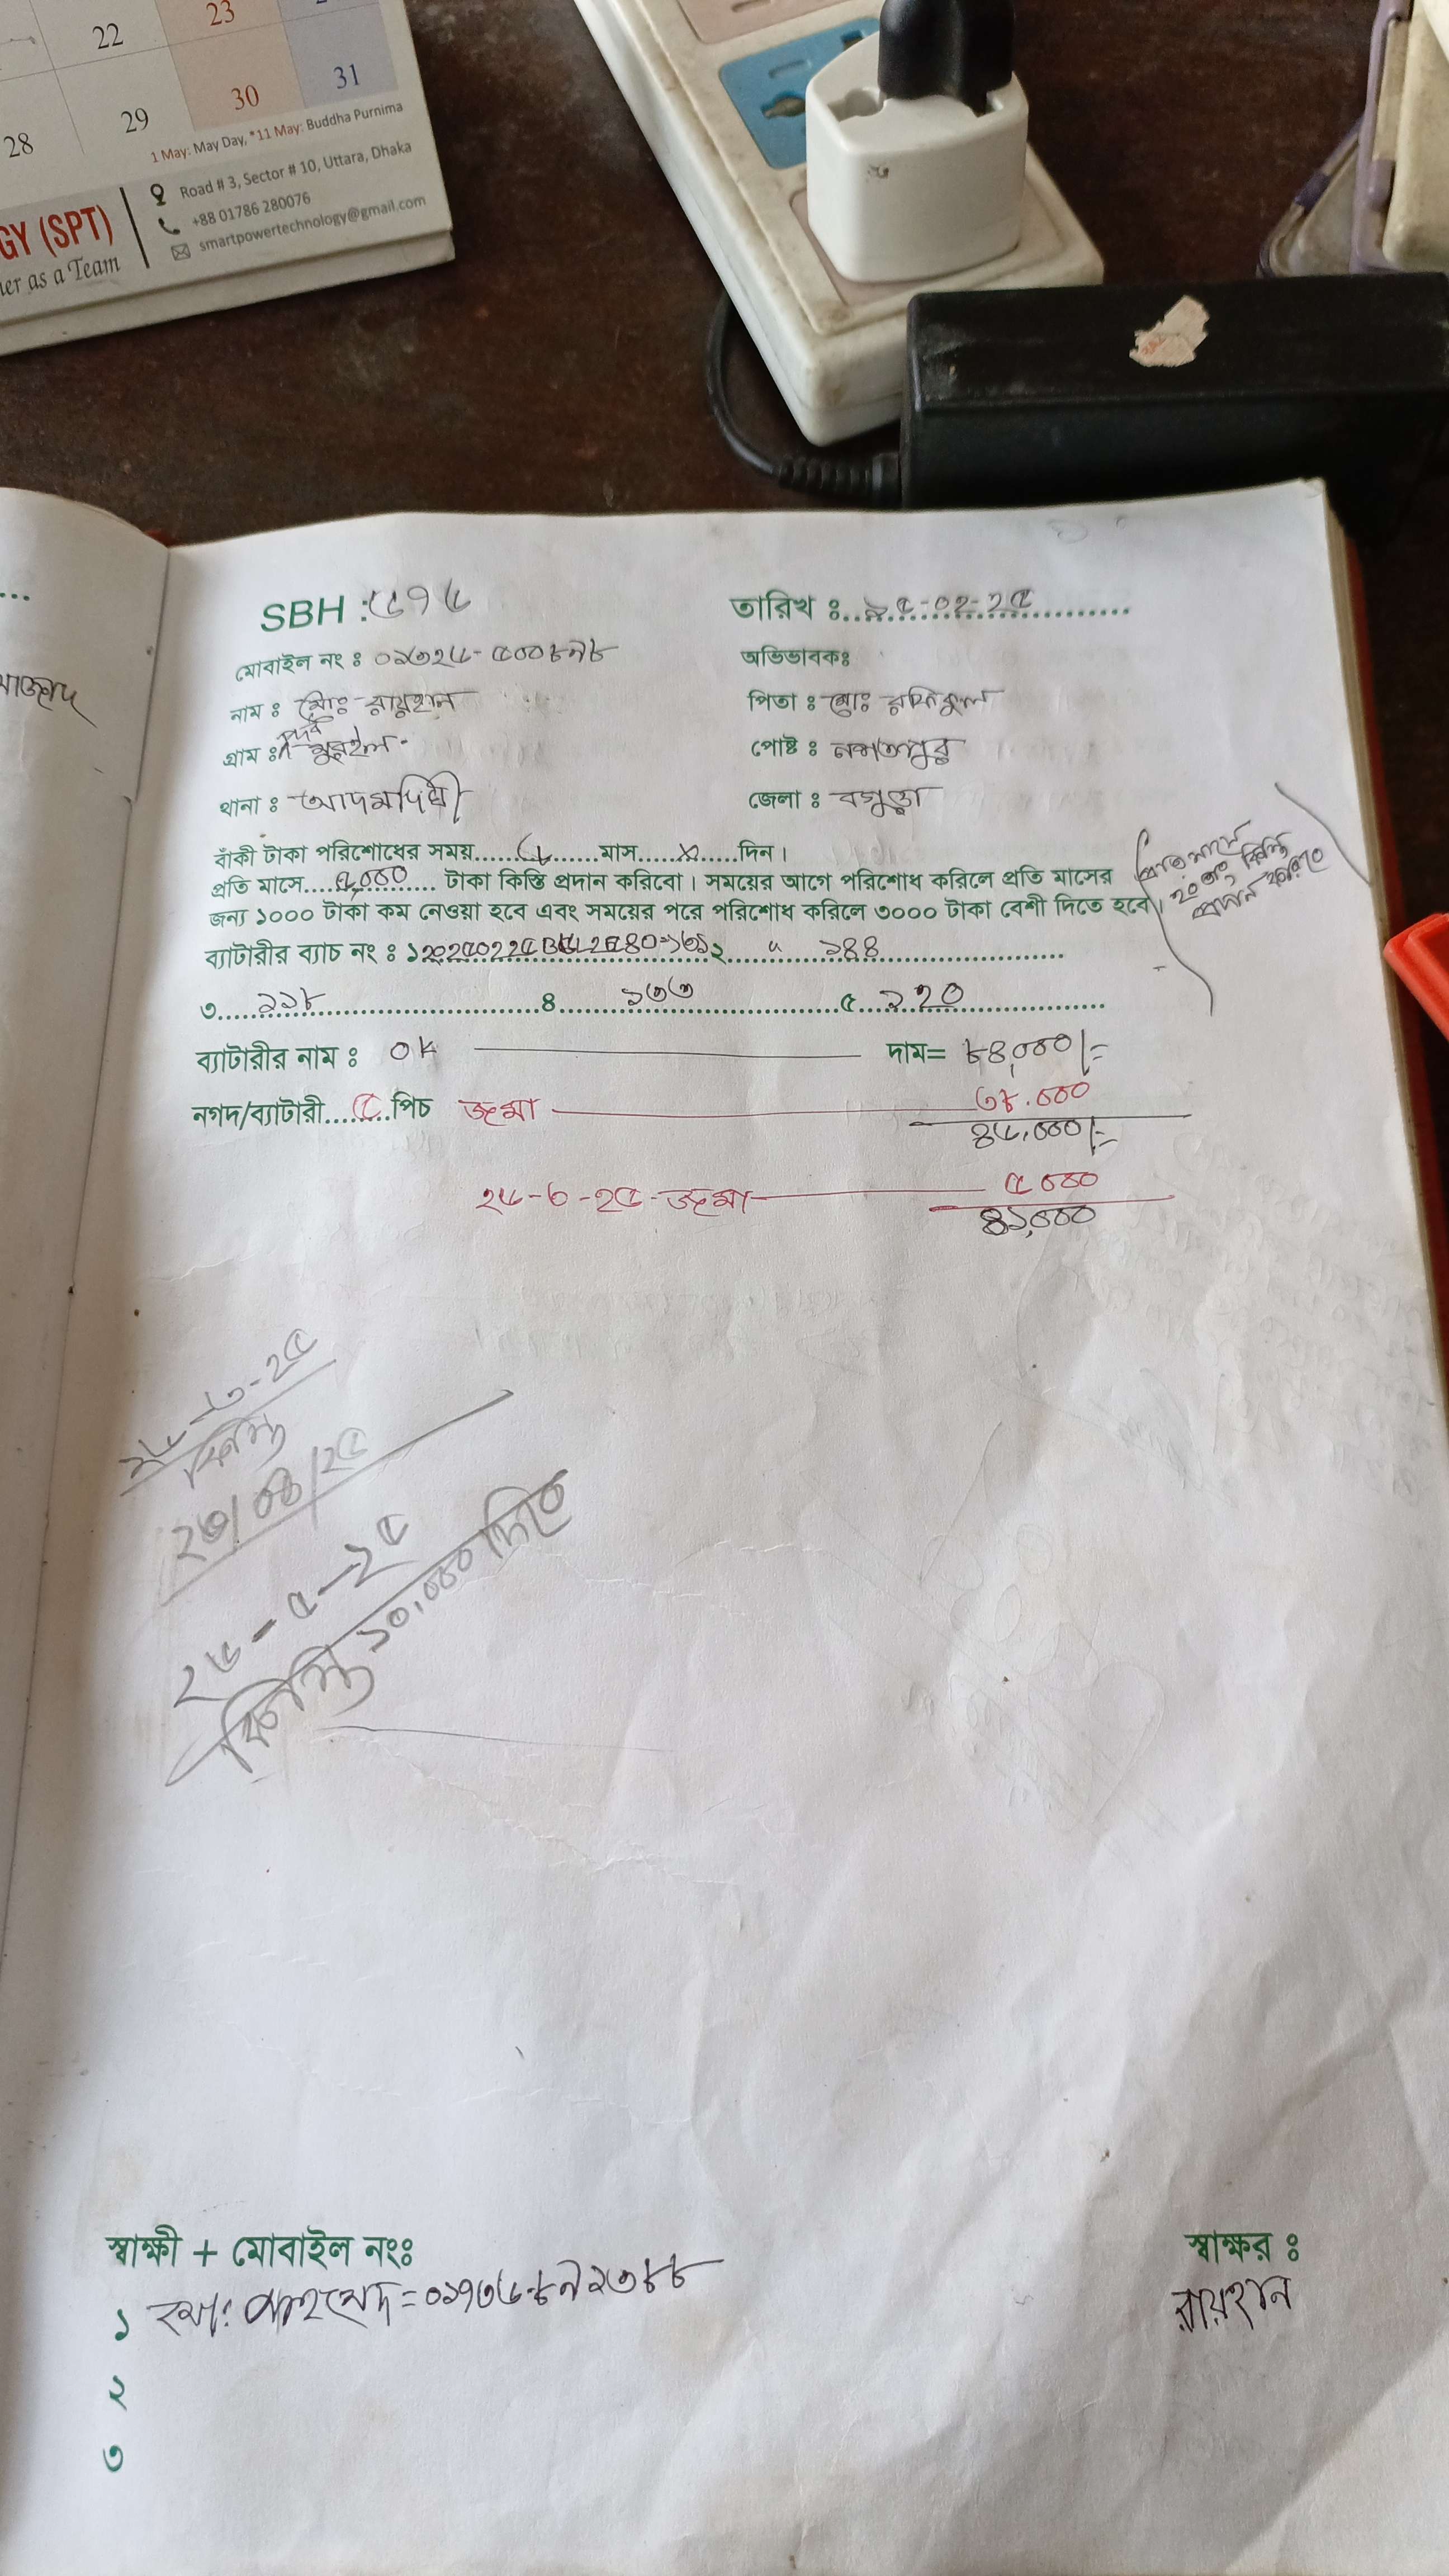 22 23
28 29 30 31
1 May: May Day, *11 May: Buddha Purnima
GY (SPT)
er as a Team
Road # 3, Sector # 10, Uttara, Dhaka
+88 01786 280076
smartpowertechnology@gmail.com
SBH : ৫৫৭৫
তারিখ ঃ ১৫-০২-২৫
মোবাইল নং ঃ
অভিভাবকঃ
নাম ঃ মোঃ রায়হান
পিতা ঃ মোঃ রফিকুল
গ্রাম ঃ
পোষ্ট ঃ নশরতপুর
থানা ঃ আদমদিঘী
জেলা ঃ বগুড়া
বাঁকী টাকা পরিশোধের সময়..........মাস.....×......দিন।
প্রতি মাসে.... ৫,০০০ .... টাকা কিস্তি প্রদান করিবো। সময়ের আগে পরিশোধ করিলে প্রতি মাসের
জন্য ১০০০ টাকা কম নেওয়া হবে এবং সময়ের পরে পরিশোধ করিলে ৩০০০ টাকা বেশী দিতে হবে।
প্রতি মাসে
কিস্তি
প্রদান করিবে
ব্যাটারীর ব্যাচ নং ঃ ১ ২...... " ১৪৪
৩.... ১১৮ ....৪.... ১৩৩ ....৫.... ১২০
ব্যাটারীর নাম ঃ OK দাম= ৮৪,০০০/=
নগদ/ব্যাটারী.... ৫ ..পিচ জমা ৩৮.০০০
৪৬,০০০/=
২৬-৩-২৫ জমা ৫০০০
৪১,০০০
২৬-৩-২৫
কিস্তি
২৬/০৪/২৫
২৬-৫-২৫
কিস্তি ১০,০০০ দিবে
স্বাক্ষী + মোবাইল নংঃ
স্বাক্ষর ঃ
১
রায়হান
২
৩